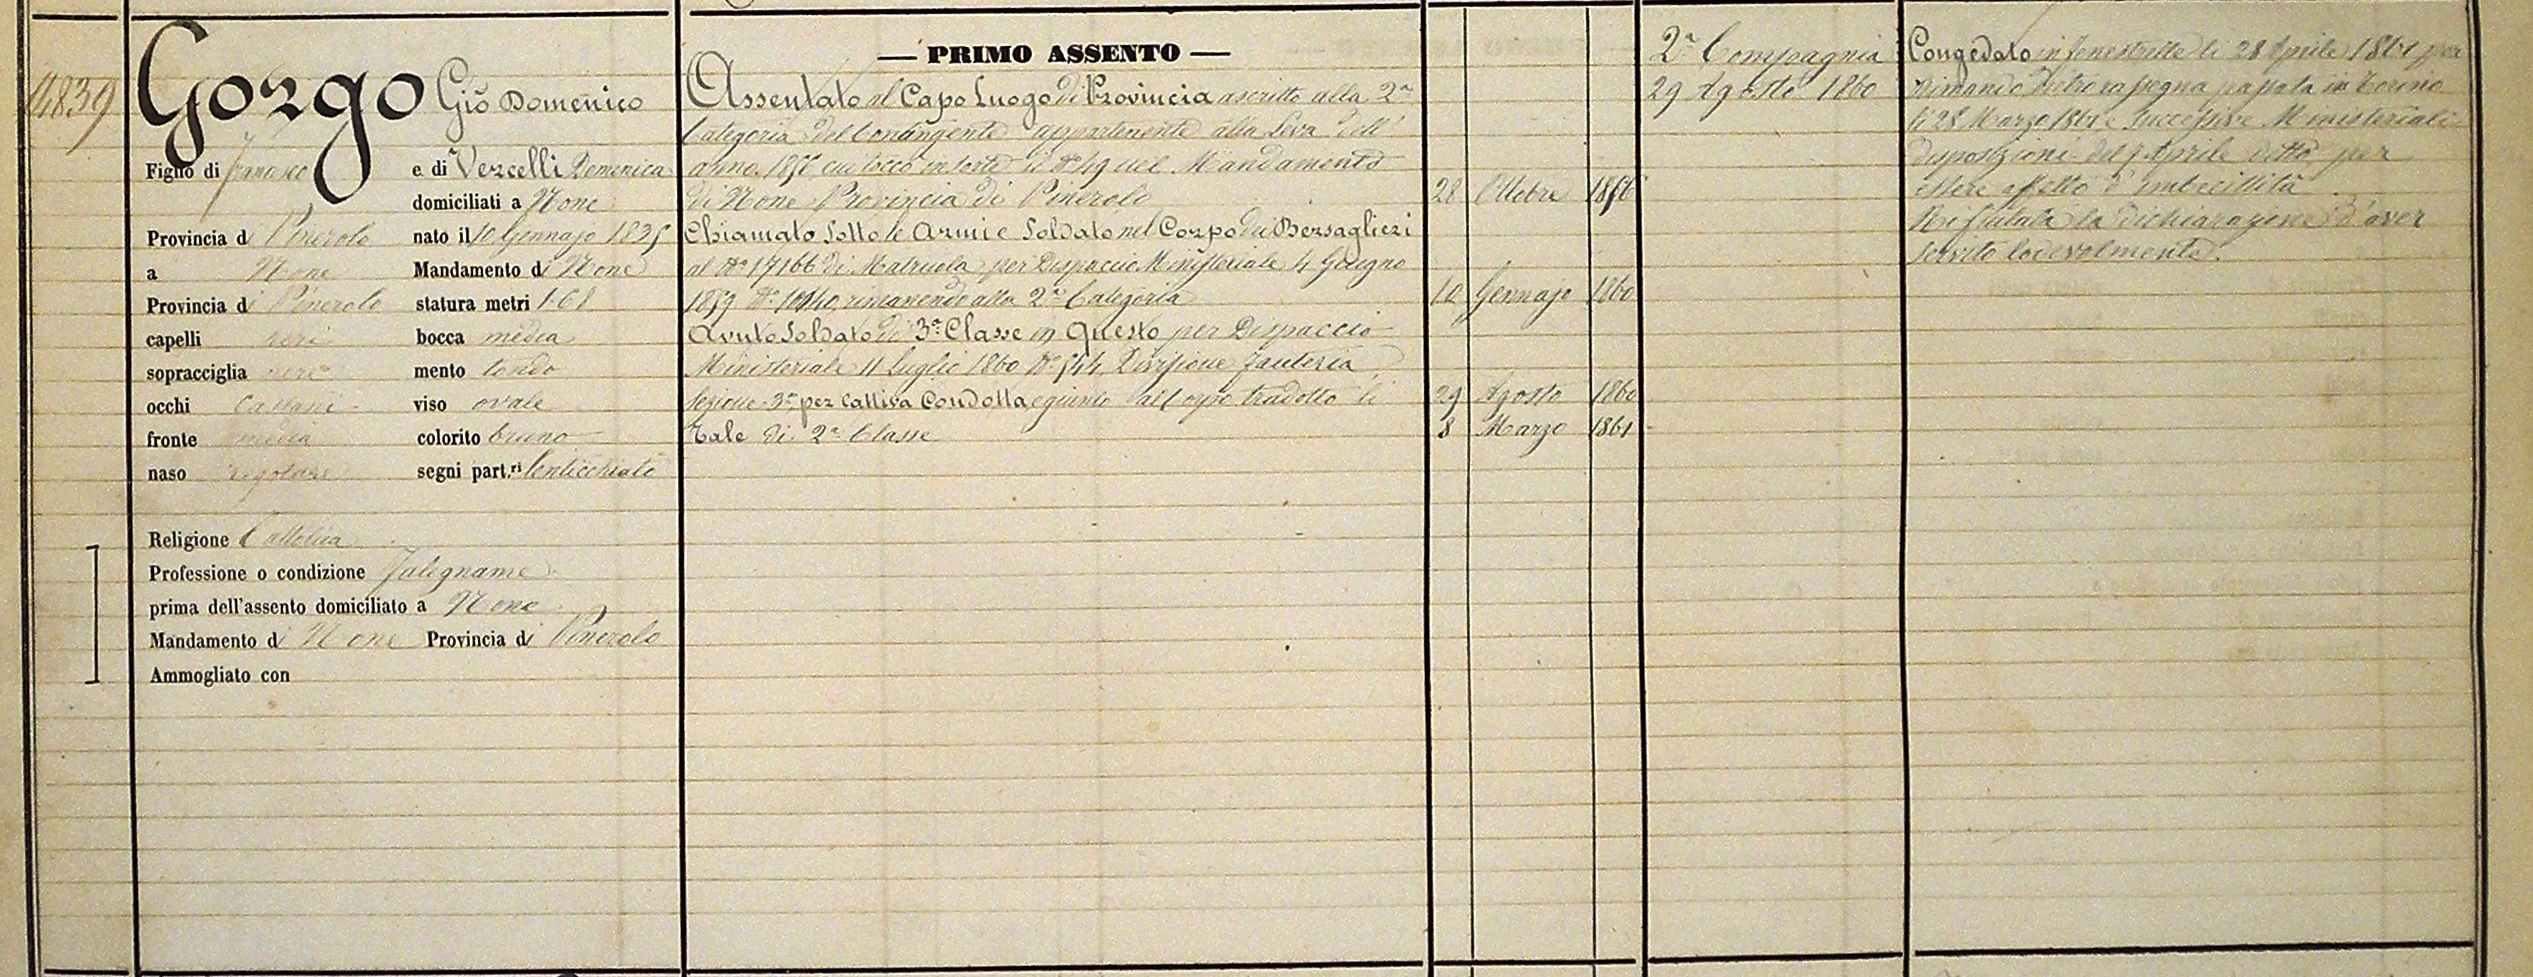 4839
Gorgo Gio Domenico
Figlio di Francesco e di Vercelli Domenica
domiciliati a None
Provincia di Pinerolo nato il 10 Gennajo 1835
a None Mandamento di None
Provincia di Pinerolo statura metri 1.68
capelli neri bocca media
sopracciglia nere mento tondo
occhi castani viso ovale
fronte media colorito bruno
naso regolare segni part.ri lenticchiato
Religione Cattolica
Professione o condizione Falegname
prima dell'assento domiciliato a None
Mandamento di None Provincia di Pinerolo
Ammogliato con
— PRIMO ASSENTO —
Assentato al Capo Luogo di Provincia ascritto alla 2ª
Categoria del Contingente appartenente alla Leva dell'
anno 1856 cui toccò in sorte il Nº 49 nel Mandamento
di None Provincia di Pinerolo 28 Ottobre 1856
Chiamato sotto le Armi e Soldato nel Corpo dei Bersaglieri
al Nº 17166 di Matricola per Dispaccio Ministeriale 4 Giugno
1859 Nº rimanendo alla 2ª Categoria 10 Gennajo 1860
Avuto Soldato di 3ª Classe in Questo per Dispaccio
Ministeriale 11 Luglio 1860 Nº 544 Divisione Fanteria
Sezione 3ª, per Cattiva Condotta e giunto al Corpo tradotto li 29 Agosto 1860
Tale di 2ª Classe 8 Marzo 1861
2ª Compagnia
29 Agosto 1860
Congedato in Fenestrelle li 28 Aprile 1861 per
rimando dietro rassegna passata in Torino
li 28 Marzo 1861 e successive Ministeriali
disposizioni del 9 Aprile detto per
essere affetto d'imbecillità.
Rifiutata la dichiarazione d'aver
servito lodevolmente.